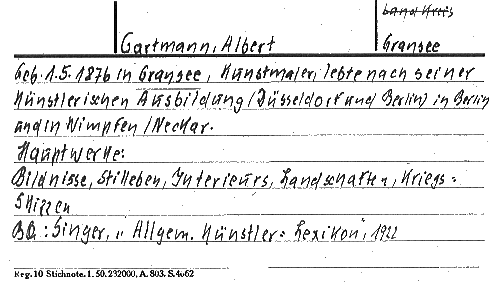 Landkreis
Gartmann, Albert
Gransee
Geb. 1.5.1876 in Gransee, Kunstmaler, lebte nach seiner
Künstlerischen Ausbildung (Düsseldorf und Berlin) in Berlin
und in Wimpfen/Neckar.
Hauptwerke:
Bildnisse, Stilleben, Interieurs, Landschaften, Kriegs=
Skizzen
BQ: Singer, „Allgem. Künstler=Lexikon", 1922
Reg. 10 Stichnote. 1. 50. 232000, A. 803. S. 4062